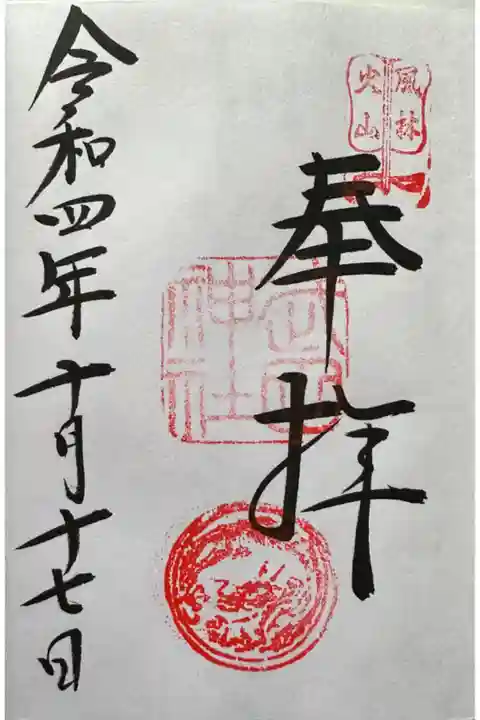 風林
火山
奉拝
令和四年十月十七日